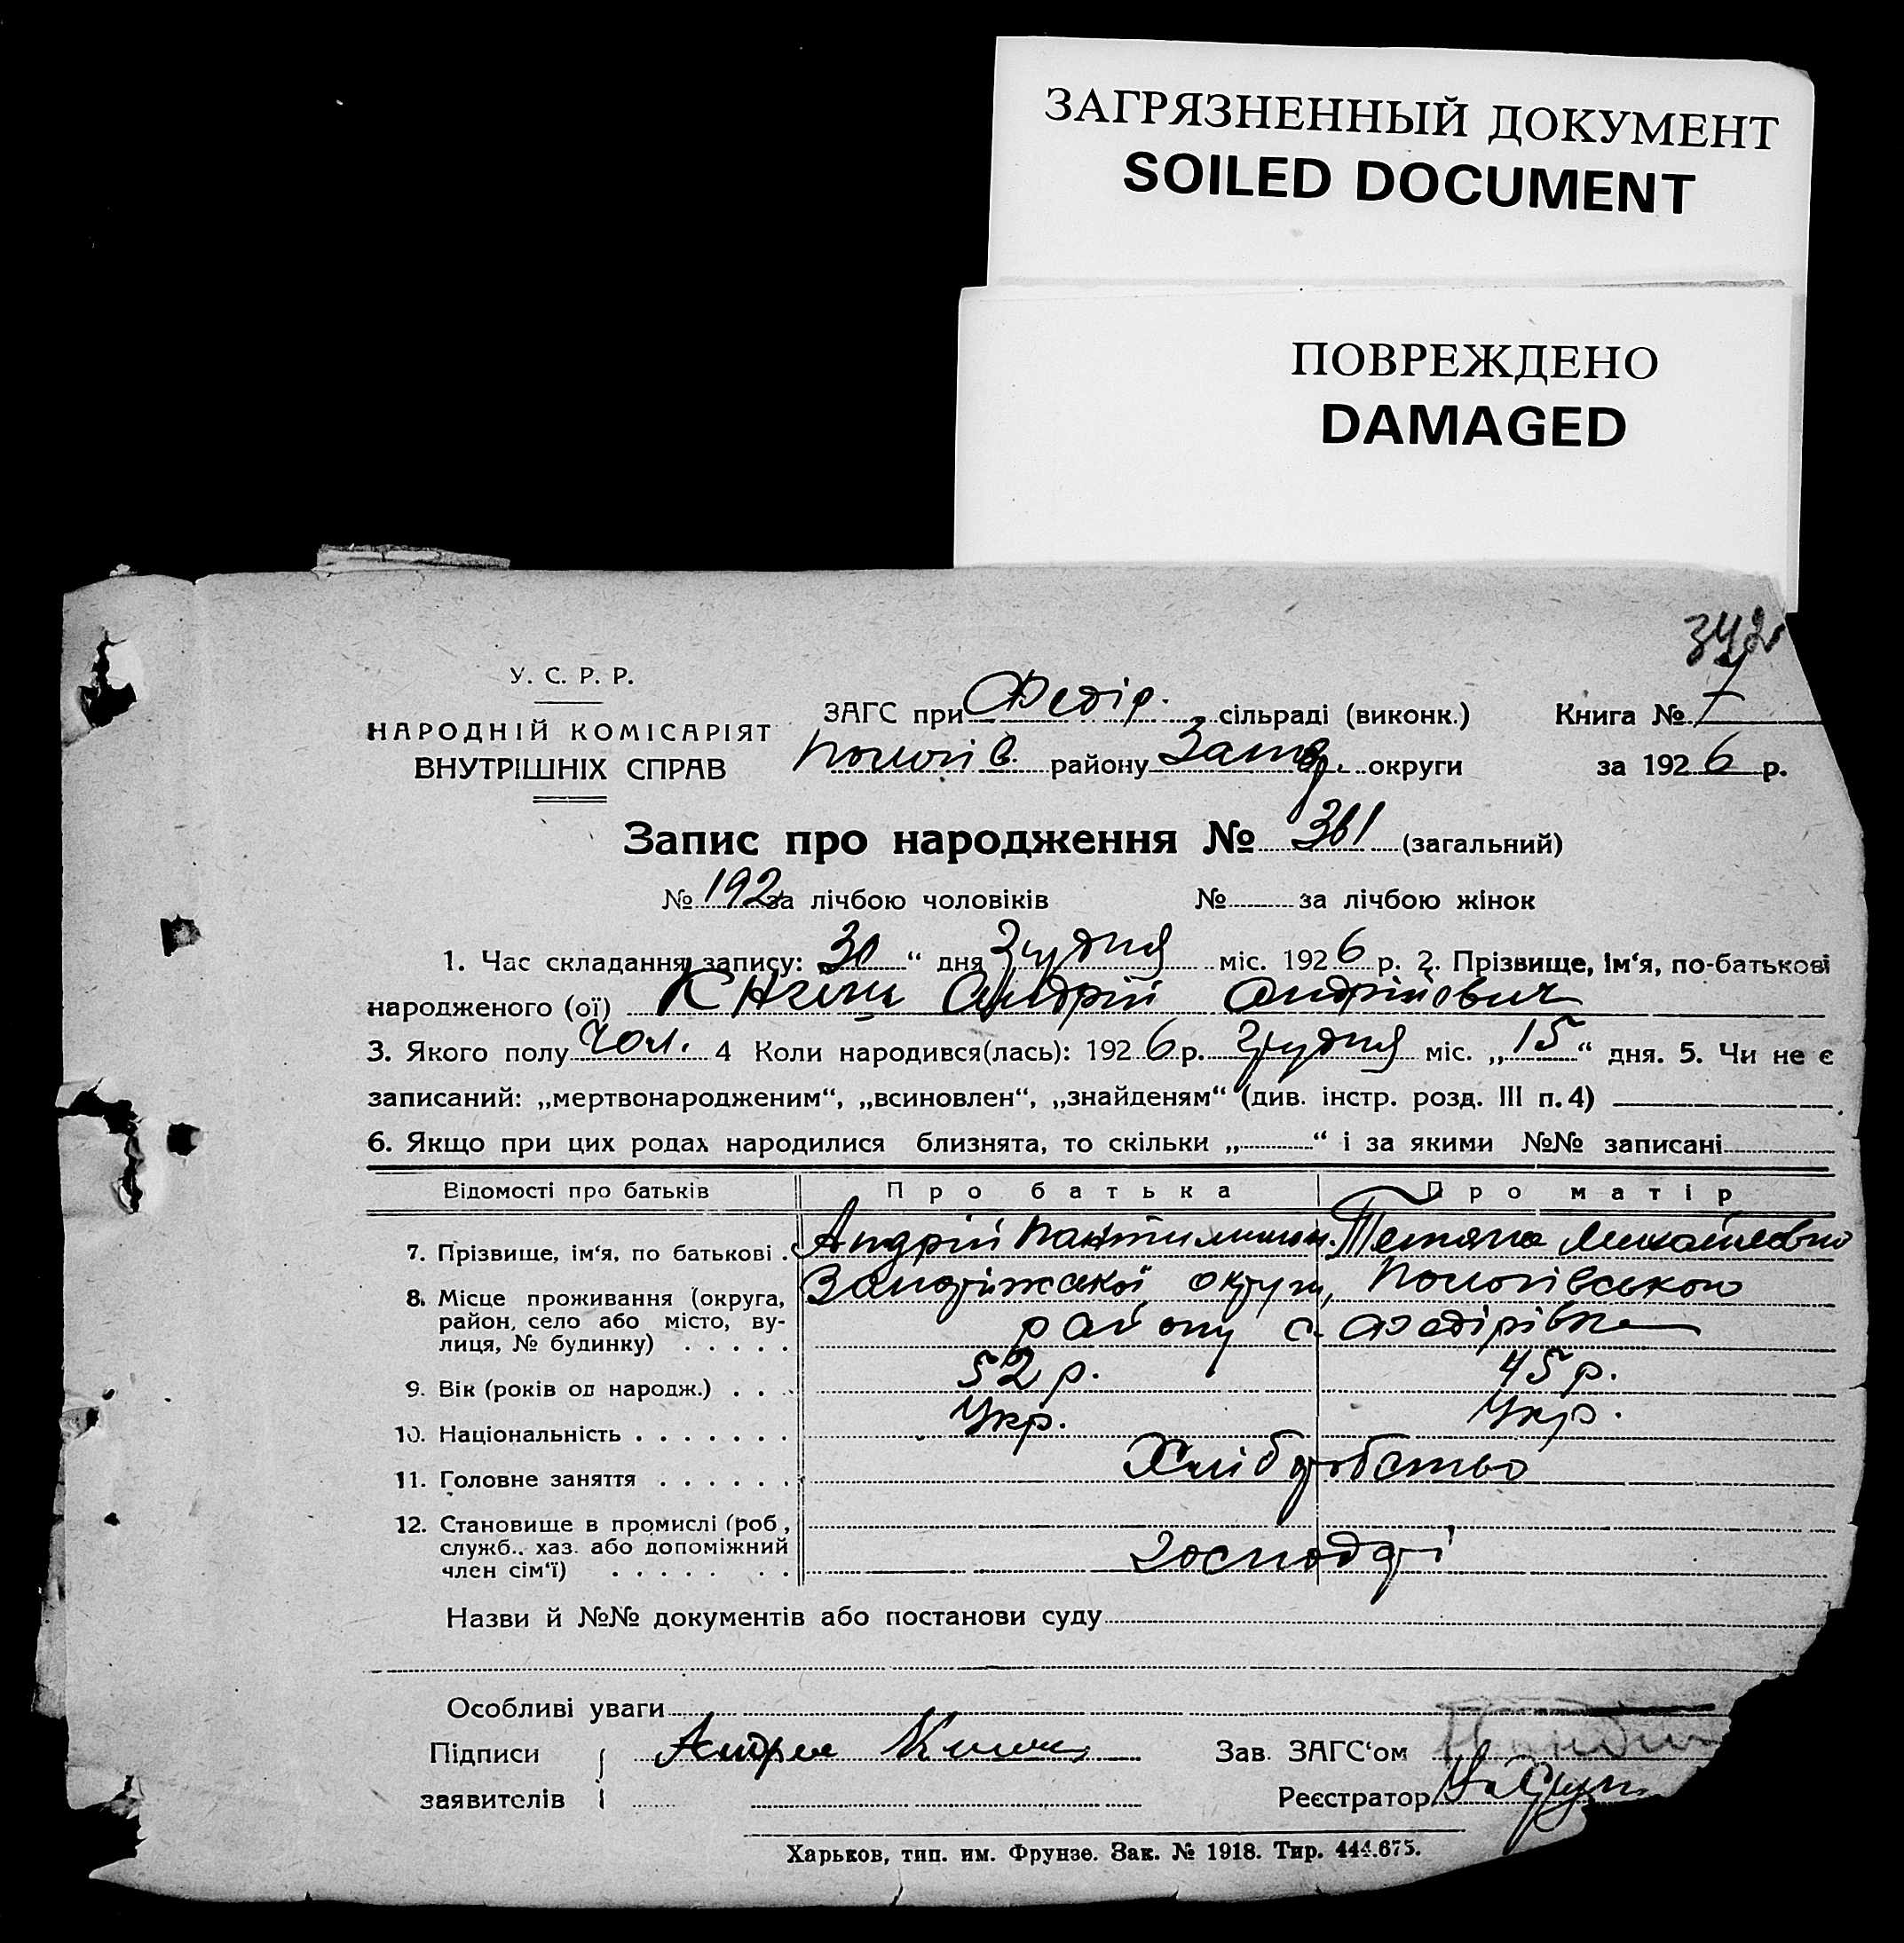 ЗАГРЯЗНЕННЫЙ ДОКУМЕНТ
SOILED DOCUMENT
ПОВРЕЖДЕНО
DAMAGED
342
У. С. Р. Р.
НАРОДНІЙ КОМІСАРІЯТ
ВНУТРІШНІХ СПРАВ
ЗАГС при Федір. сільраді (виконк.) Книга № 7
Пологів. району Запор. округи за 1926 р.
Запис про народження № 361 (загальний)
№ 192 за лічбою чоловіків № за лічбою жінок
1. Час складання запису: 30 “ дня Грудня міс. 1926 р. 2. Прізвище, ім‘я, по-батькові
народженого (ої) Андрій Андрійович
3. Якого полу чол. 4 Коли народився(лась): 1926 р. Грудня міс. „15“ дня. 5. Чи не є
записаний: „мертвонародженим“, „всиновлен“, „знайденям“ (див. інстр. розд. III п. 4)
6. Якщо при цих родах народилися близнята, то скільки „ “ і за якими №№ записані
Відомості про батьків Про батька Про матір
7. Прізвище, ім‘я, по батькові . Андрій Тетяна Михайловна
8. Місце проживання (округа, Запоріжської округи, Пологівського
район, село або місто, ву- району с. Федірівка
лиця, № будинку) . . . . .
9. Вік (років од народж.) . . . 52 р. 45 р.
10. Національність . . . . . . . Укр. Укр.
11. Головне заняття . . . . . . Хліборобство
12. Становище в промислі (роб.,
служб.. хаз. або допоміжний господарі
член сім‘ї) . . . . . . .
Назви й №№ документів або постанови суду
Особливі уваги
Підписи Андрей Зав. ЗАГС‘ом
заявителів Реєстратор
Харьков, тип. им. Фрунзе. Зак. № 1918. Тир. 444.675.